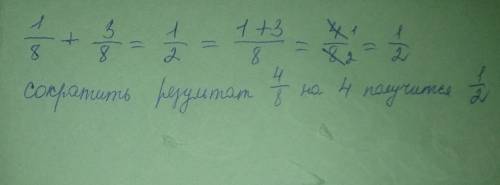 1/8 + 3/8 = 1/2 = (1+3)/8 = 4̸ 1/8̸ 2 = 1/2
сократить результат 4/8 на 4 получится 1/2